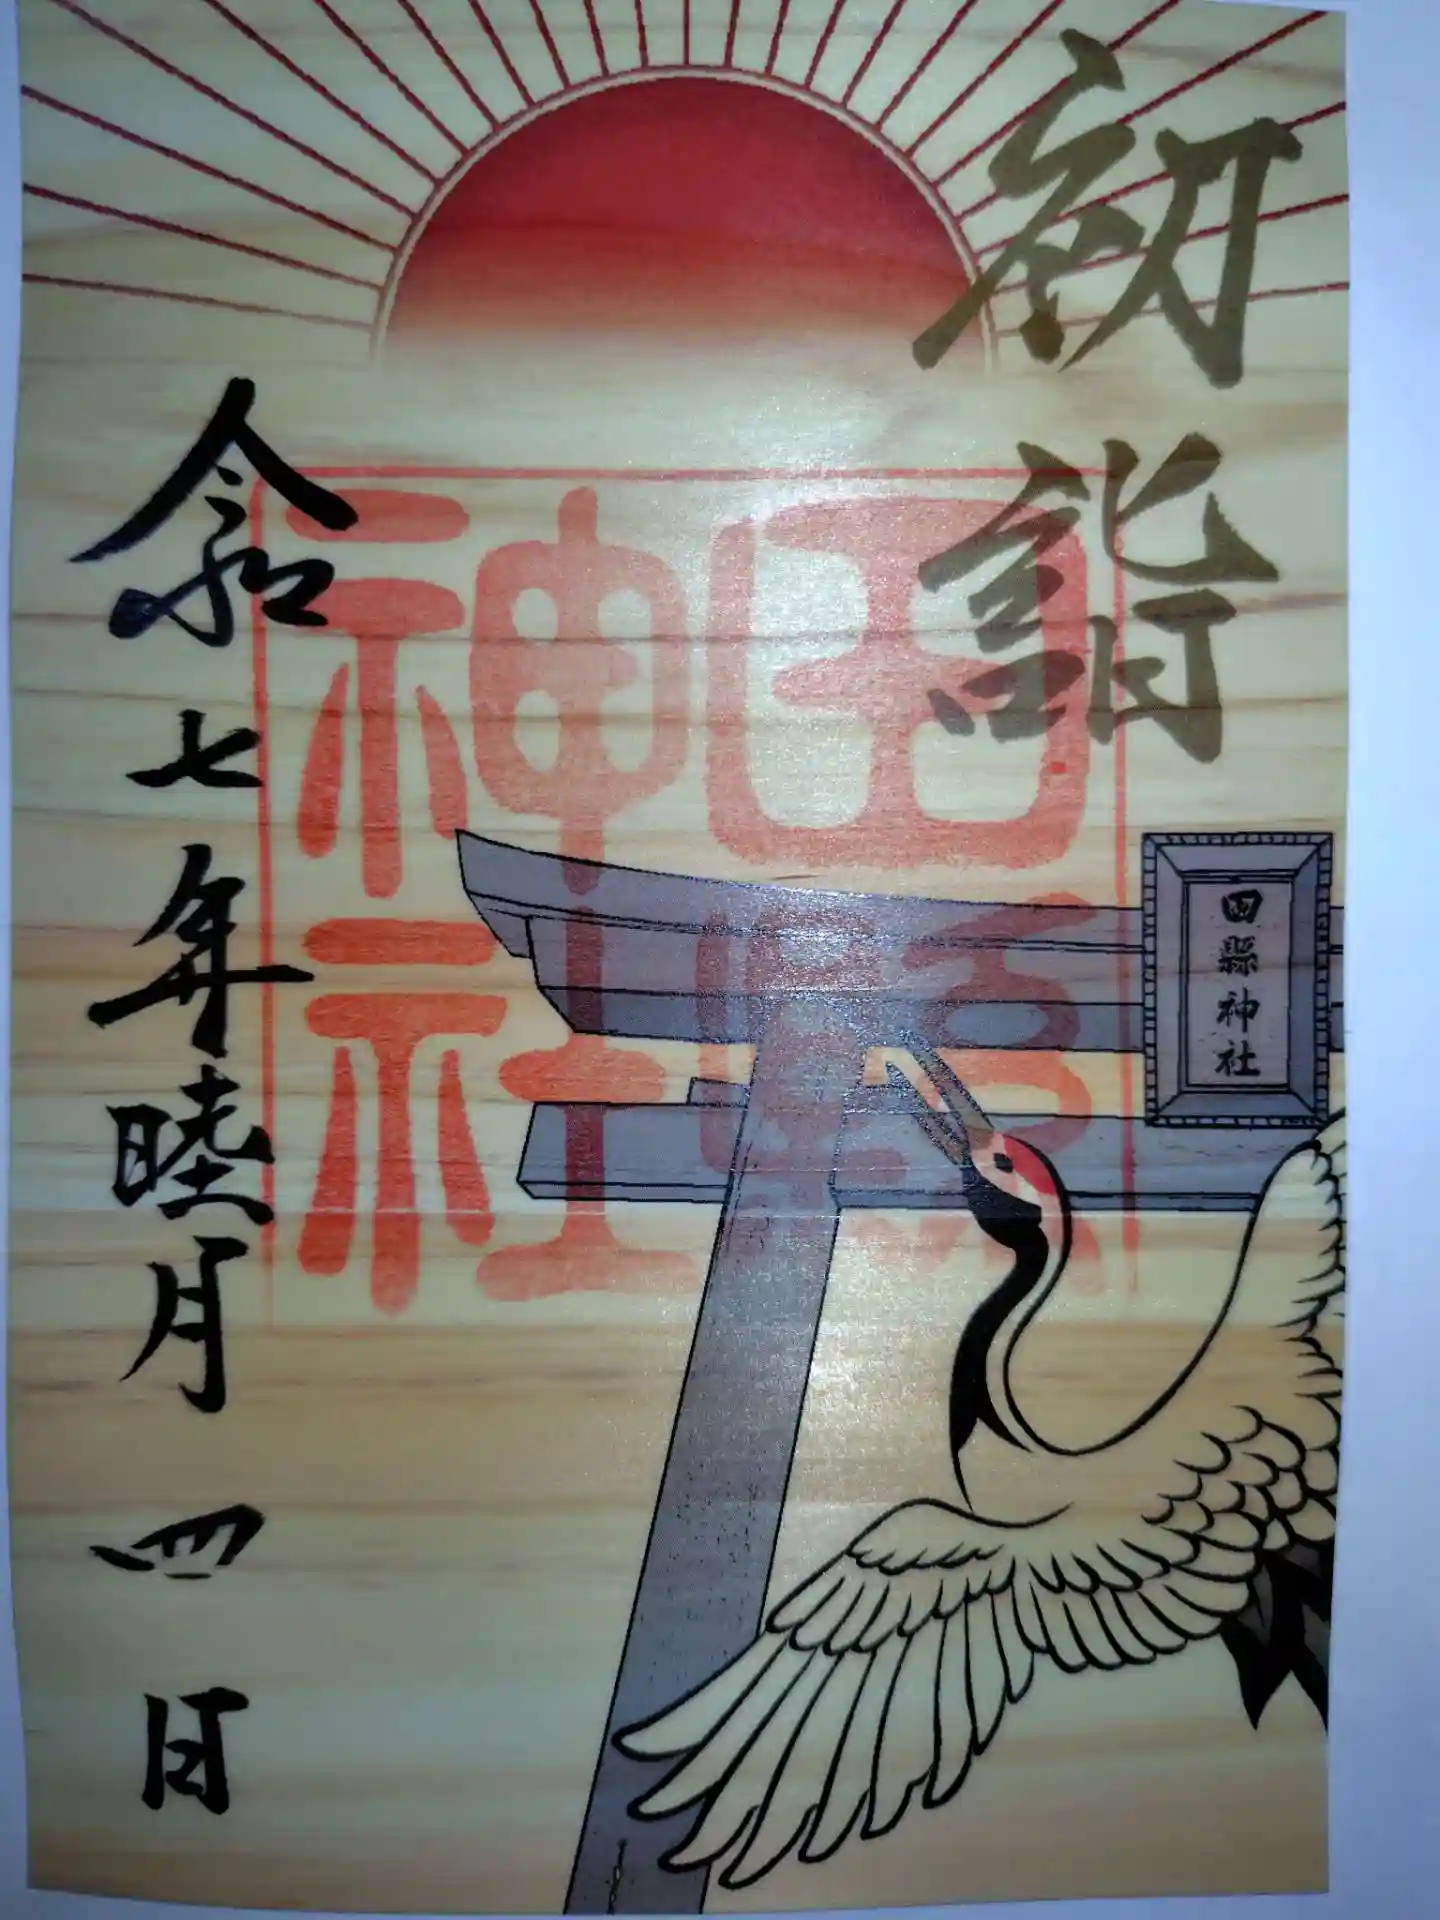 初詣
田縣神社
田縣神社
令和七年睦月四日